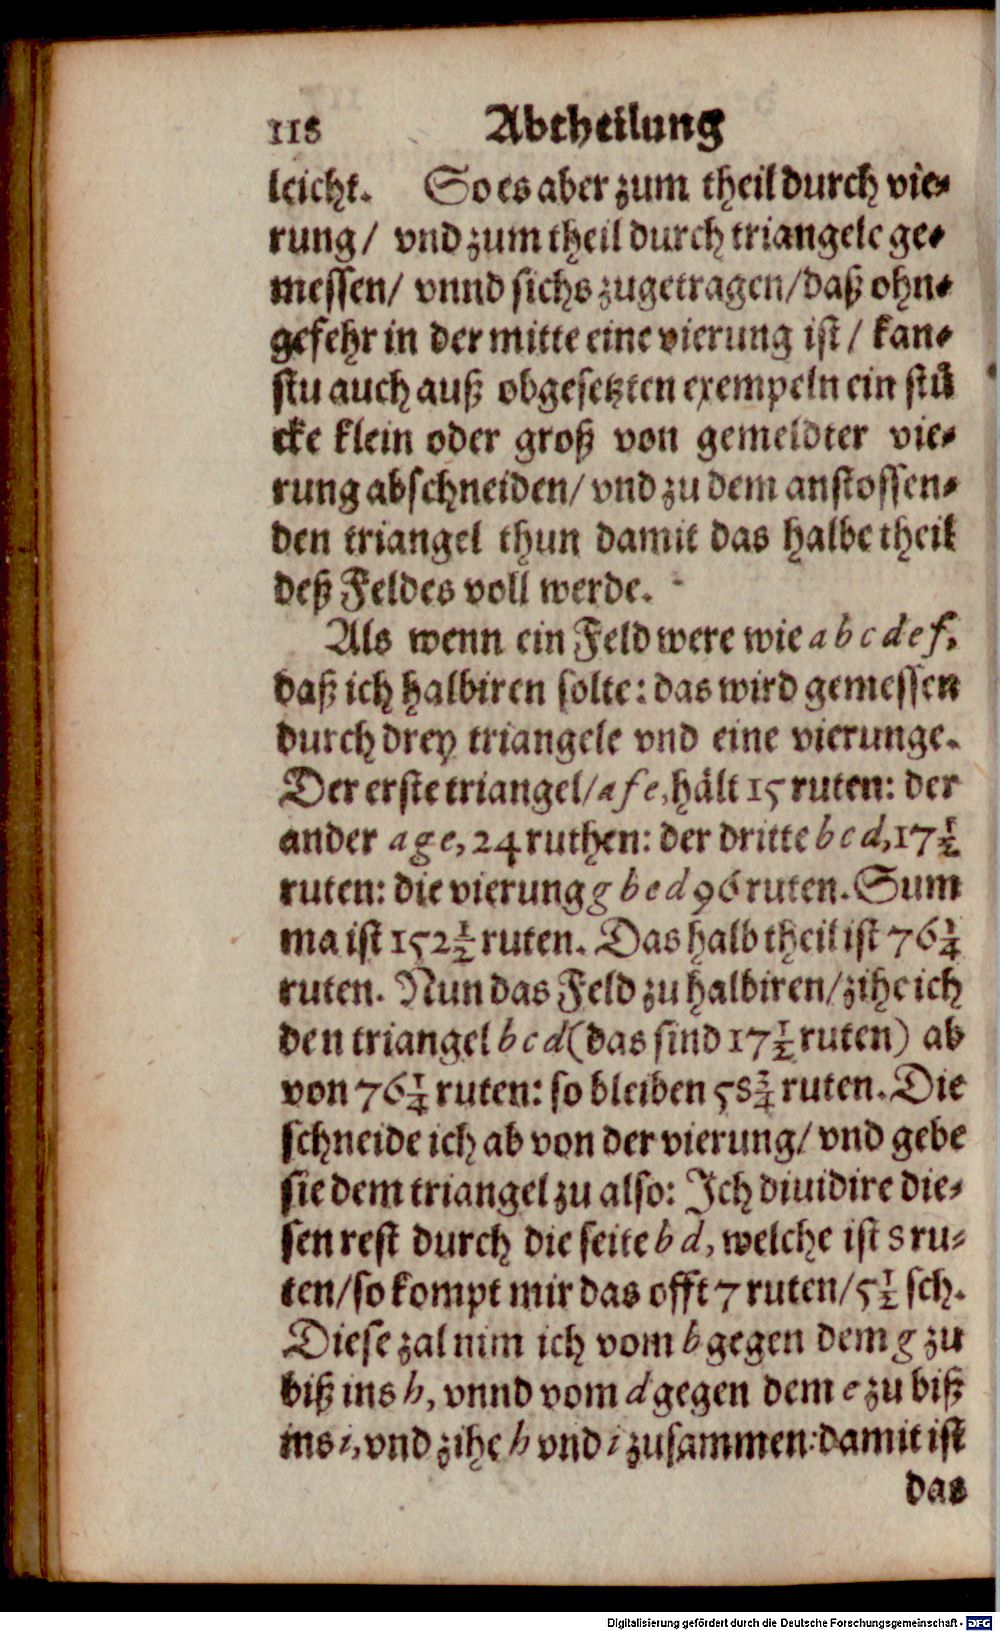 118 Abtheilung
leicht. So es aber zum theil durch vie-
rung/ vnd zum theil durch triangele ge-
messen/ vnnd sichs zugetragen/ daß ohn-
gefehr in der mitte eine vierung ist/ kan-
stu auch auß obgesetzten exempeln ein stů
cke klein oder groß von gemeldter vie-
rung abschneiden/ vnd zu dem anstossen-
den triangel thun damit das halbe theil
deß Feldes voll werde.
Als wenn ein Feld were wie a b c d e f,
daß ich halbiren solte: das wird gemessen
durch drey triangele vnd eine vierunge.
Der erste triangel/ a f e, hält 15 ruten: der
ander a g e, 24 ruthen: der dritte b c d, 17 1/2
ruten: die vierung g b e d 96 ruten. Sum
ma ist 152 1/2 ruten. Das halb theil ist 76 1/4
ruten. Nun das Feld zu halbiren/ zihe ich
den triangel b c d (das sind 17 1/2 ruten) ab
von 76 1/4 ruten: so bleiben 58 3/4 ruten. Die
schneide ich ab von der vierung/ vnd gebe
sie dem triangel zu also: Ich diuidire die-
sen rest durch die seite b d, welche ist 8 ru-
ten/ so kompt mir das offt 7 ruten/ 5 1/2 sch.
Diese zal nim ich vom b gegen dem g zu
biß ins h, vnnd vom d gegen dem e zu biß
ins i, vnd zihe h vnd i zusammen: damit ist
das
Digitalisierung gefördert durch die Deutsche Forschungsgemeinschaft - DFG